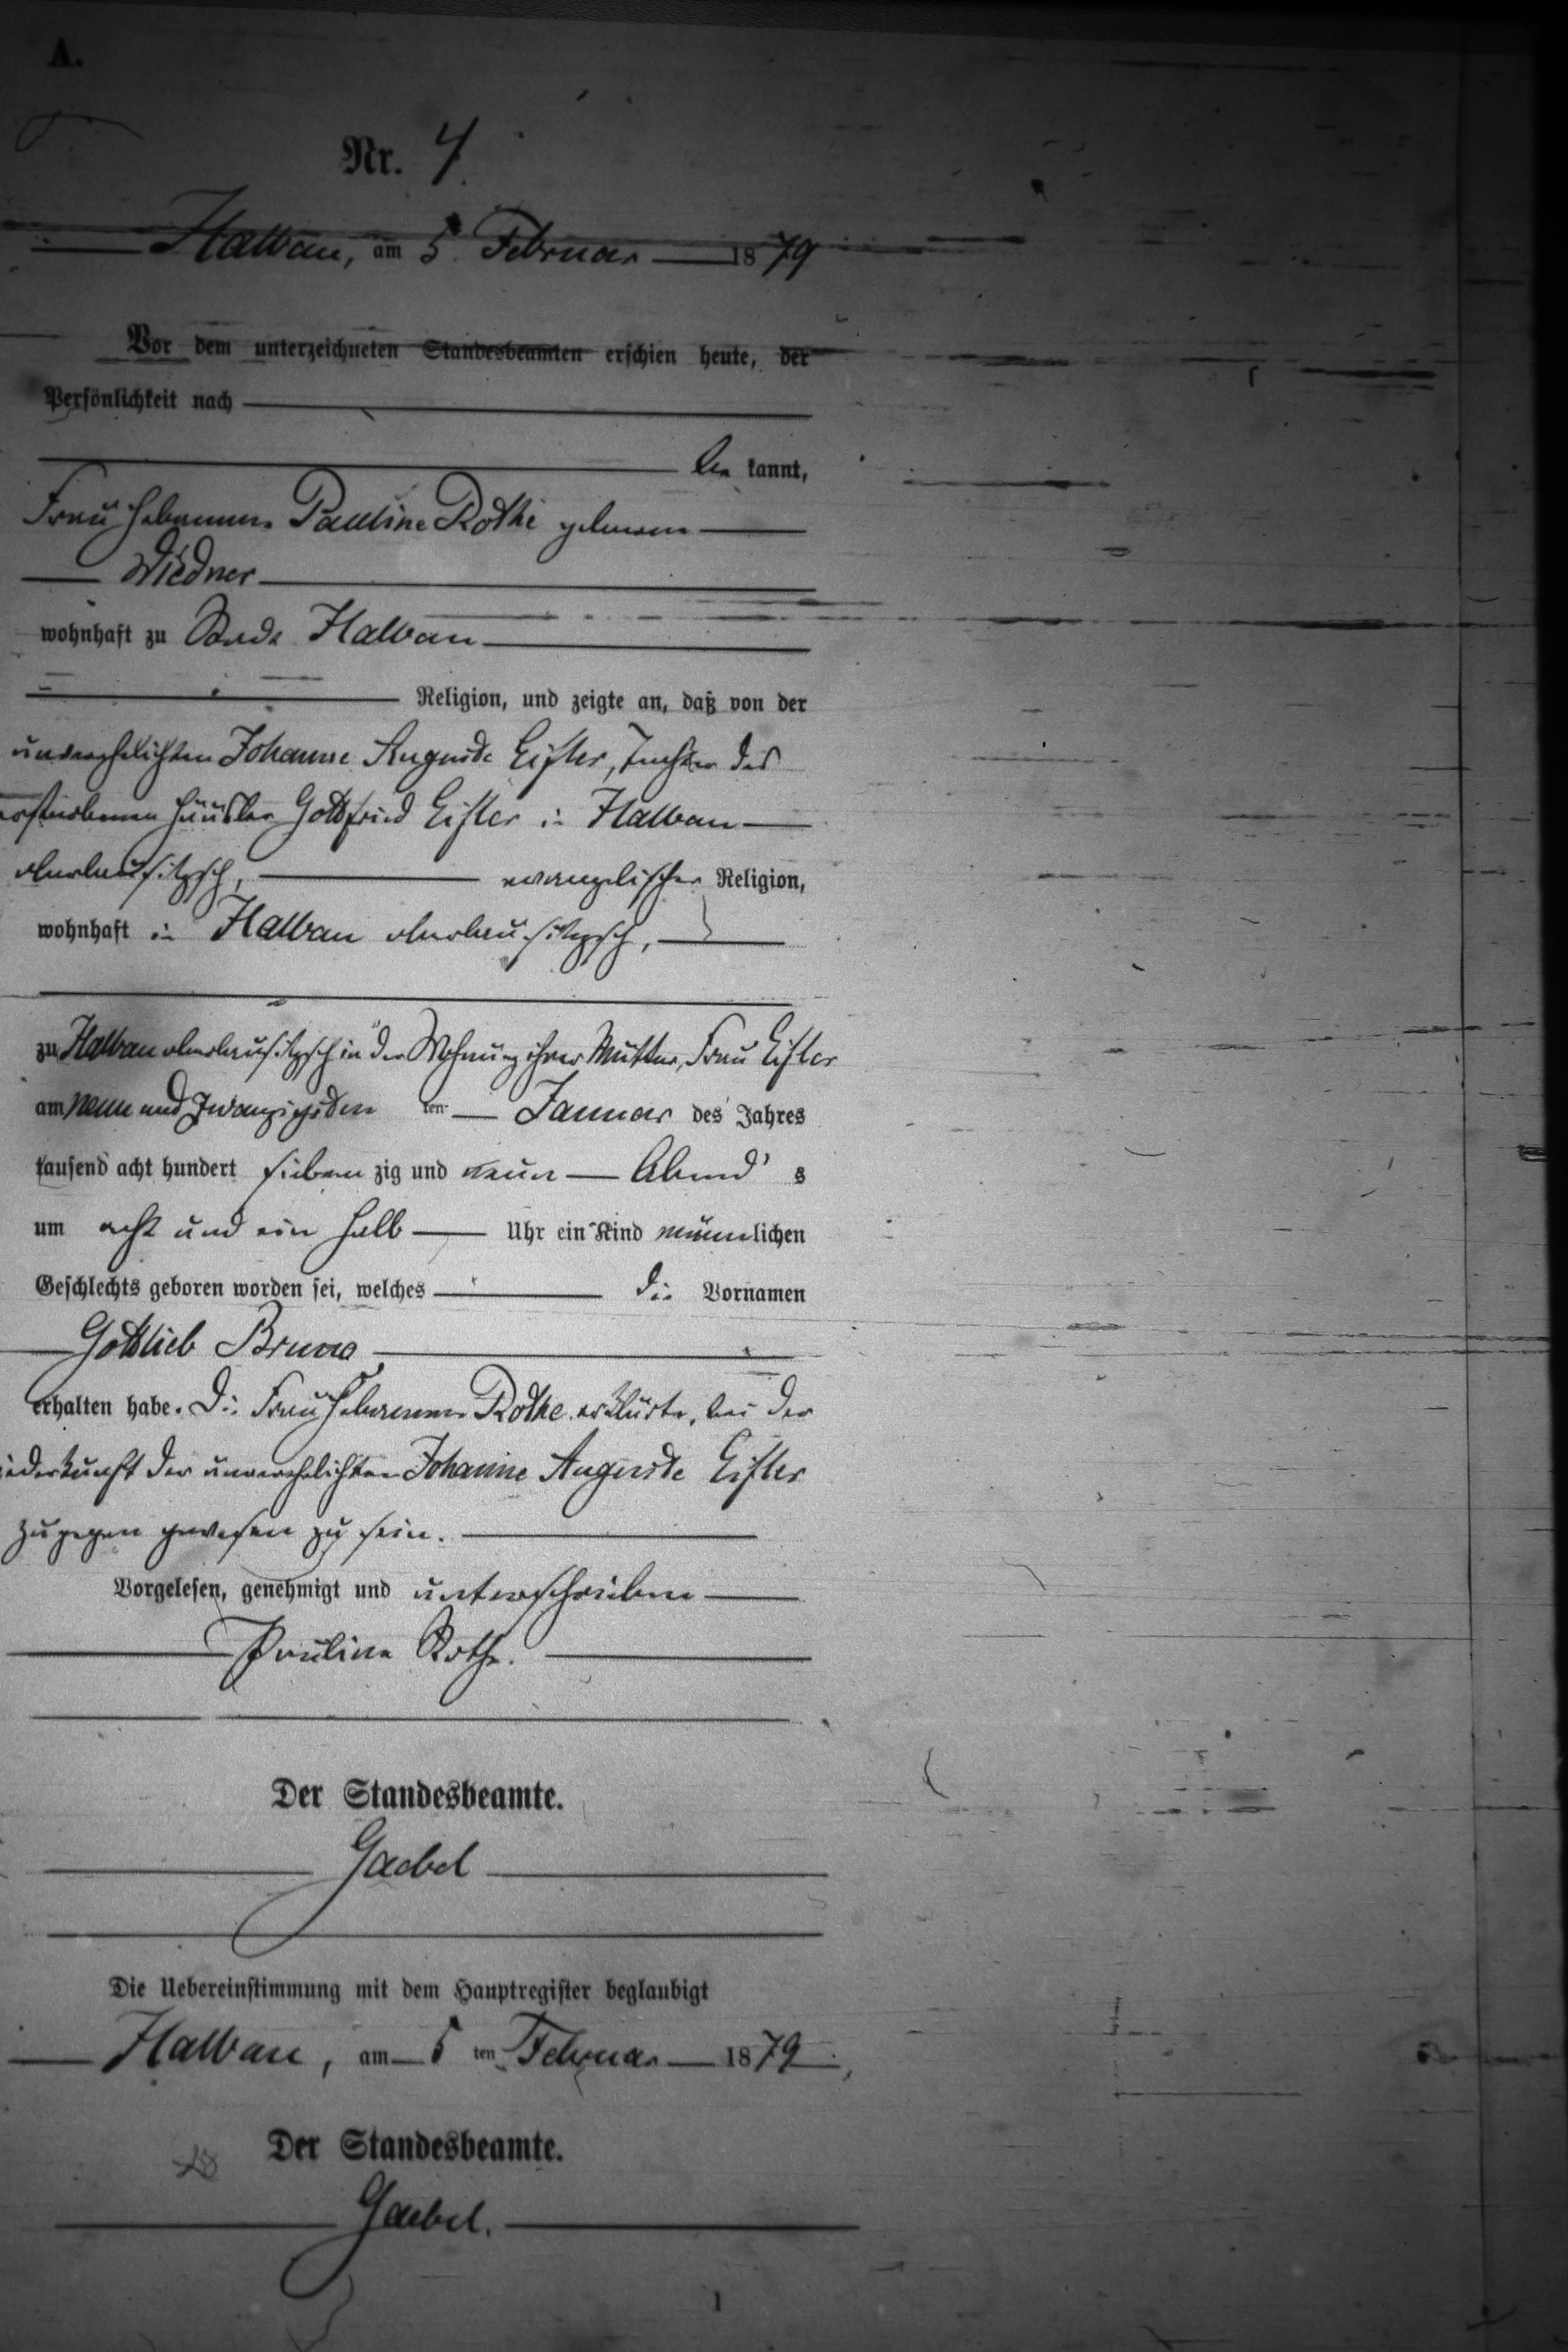 A.
Nr. 4.
Halbau, am 5. Februar 1879
Vor dem unterzeichneten Standesbeamten erschien heute, der
Persönlichkeit nach
be kannt,
Frau Hebamme Pauline Rothe geborene
Wiedner
wohnhaft zu Stadt Halbau
Religion, und zeigte an, daß von der
unverehelichten Johanne Auguste Eifler, Tochter des
verstorbenen Häusler Gottfried Eifler in Halbau
oberlausitzsch, evangelischer Religion,
wohnhaft in Halbau oberlausitzsch,
zu Halbau oberlausitzsch in der Wohnung ihrer Mutter, Frau Eifler
am neun und zwanzigsten ten Januar des Jahres
tausend acht hundert sieben zig und neun Abend's
um acht und ein halb Uhr ein Kind männlichen
Geschlechts geboren worden sei, welches die Vornamen
Gottlieb Bruno
erhalten habe. Die Frau Hebamme Rothe erklärte, bei der
iederkunft der unverehelichten Johanne Auguste Eifler
zugegen gewesen zu sein.
Vorgelesen, genehmigt und unterschrieben
Pauline Rothe.
Der Standesbeamte.
Gaebel
Die Uebereinstimmung mit dem Hauptregister beglaubigt
Halbau, am 5 ten Februar 1879.
Der Standesbeamte.
Gaebel.
1